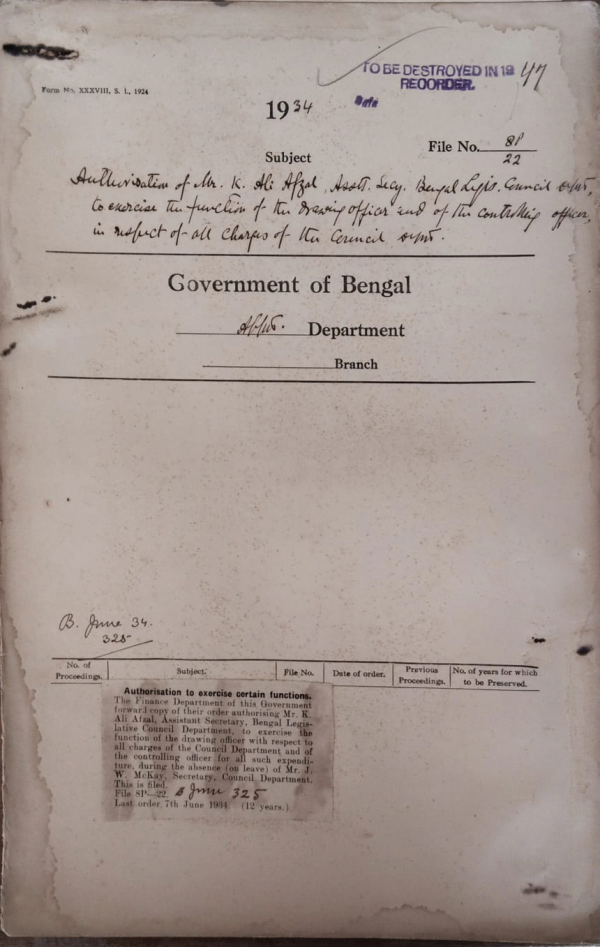 Form No. XXXVIII, S. I., 1924
TO BE DESTROYED IN 19 47
RECORDER.
Date
1934
File No. 8P/22
Subject
Authorisation of Mr. K. Ali Afzal, Asstt. Secy. Bengal Legis. Council Deptt.,
to exercise the function of the drawing officer and of the controlling officer,
in respect of all charges of the Council Deptt.
Government of Bengal
Apptt. Department
Branch
B. June 34.
325
No. of Proceedings. Subject. File No. Date of order. Previous Proceedings. No. of years for which to be Preserved.
Authorisation to exercise certain functions.
The Finance Department of this Government
forward copy of their order authorising Mr. K.
Ali Afzal, Assistant Secretary, Bengal Legis-
lative Council Department, to exercise the
function of the drawing officer with respect to
all charges of the Council Department and of
the controlling officer for all such expendi-
ture, during the absence (on leave) of Mr. J.
W. McKay, Secretary, Council Department.
This is filed.
File 8P—22. B June 325
Last order 7th June 1934 (12 years.)